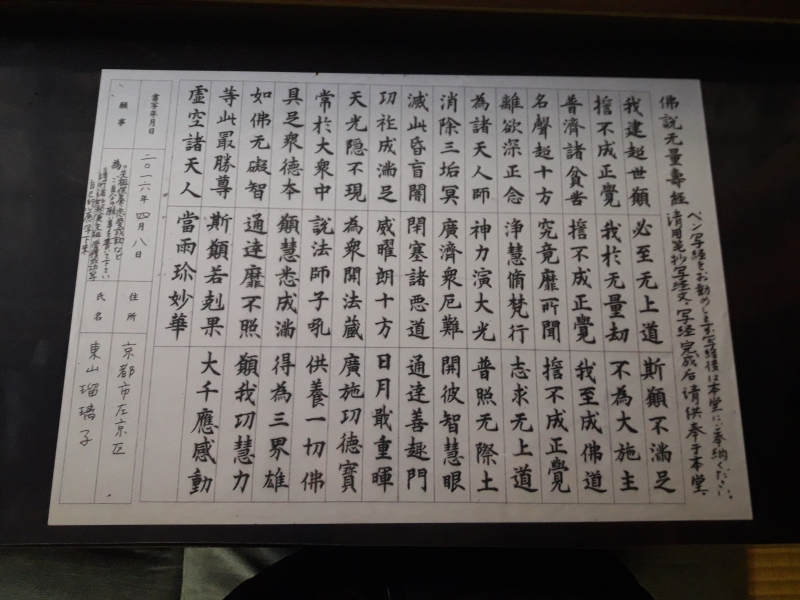 ペン写経をお勧めします。写経後は本堂にご奉納ください。
请用笔抄写经文。写经完成后请供奉于本堂。
佛説无量壽經
我建超世願 必至无上道 斯願不満足
誓不成正覺 我於无量劫 不為大施主
普濟諸貧苦 誓不成正覺 我至成佛道
名聲超十方 究竟靡所聞 誓不成正覺
離欲深正念 浄慧脩梵行 志求无上道
為諸天人師 神力演大光 普照无際土
消除三垢冥 廣濟衆厄難 開彼智慧眼
滅此昏盲闇 閉塞諸悪道 通達善趣門
功祚成満足 威曜朗十方 日月戢重暉
天光隠不現 為衆開法蔵 廣施功德寶
常於大衆中 説法師子吼 供養一切佛
具足衆德本 願慧悉成満 得為三界雄
如佛无礙智 通達靡不照 願我功慧力
等此最勝尊 斯願若剋果 大千應感動
虚空諸天人 當雨珍妙華
書写年月日 二〇一六年四月八日 住所 京都市左京区
願事 為 氏名 東山瑠璃子